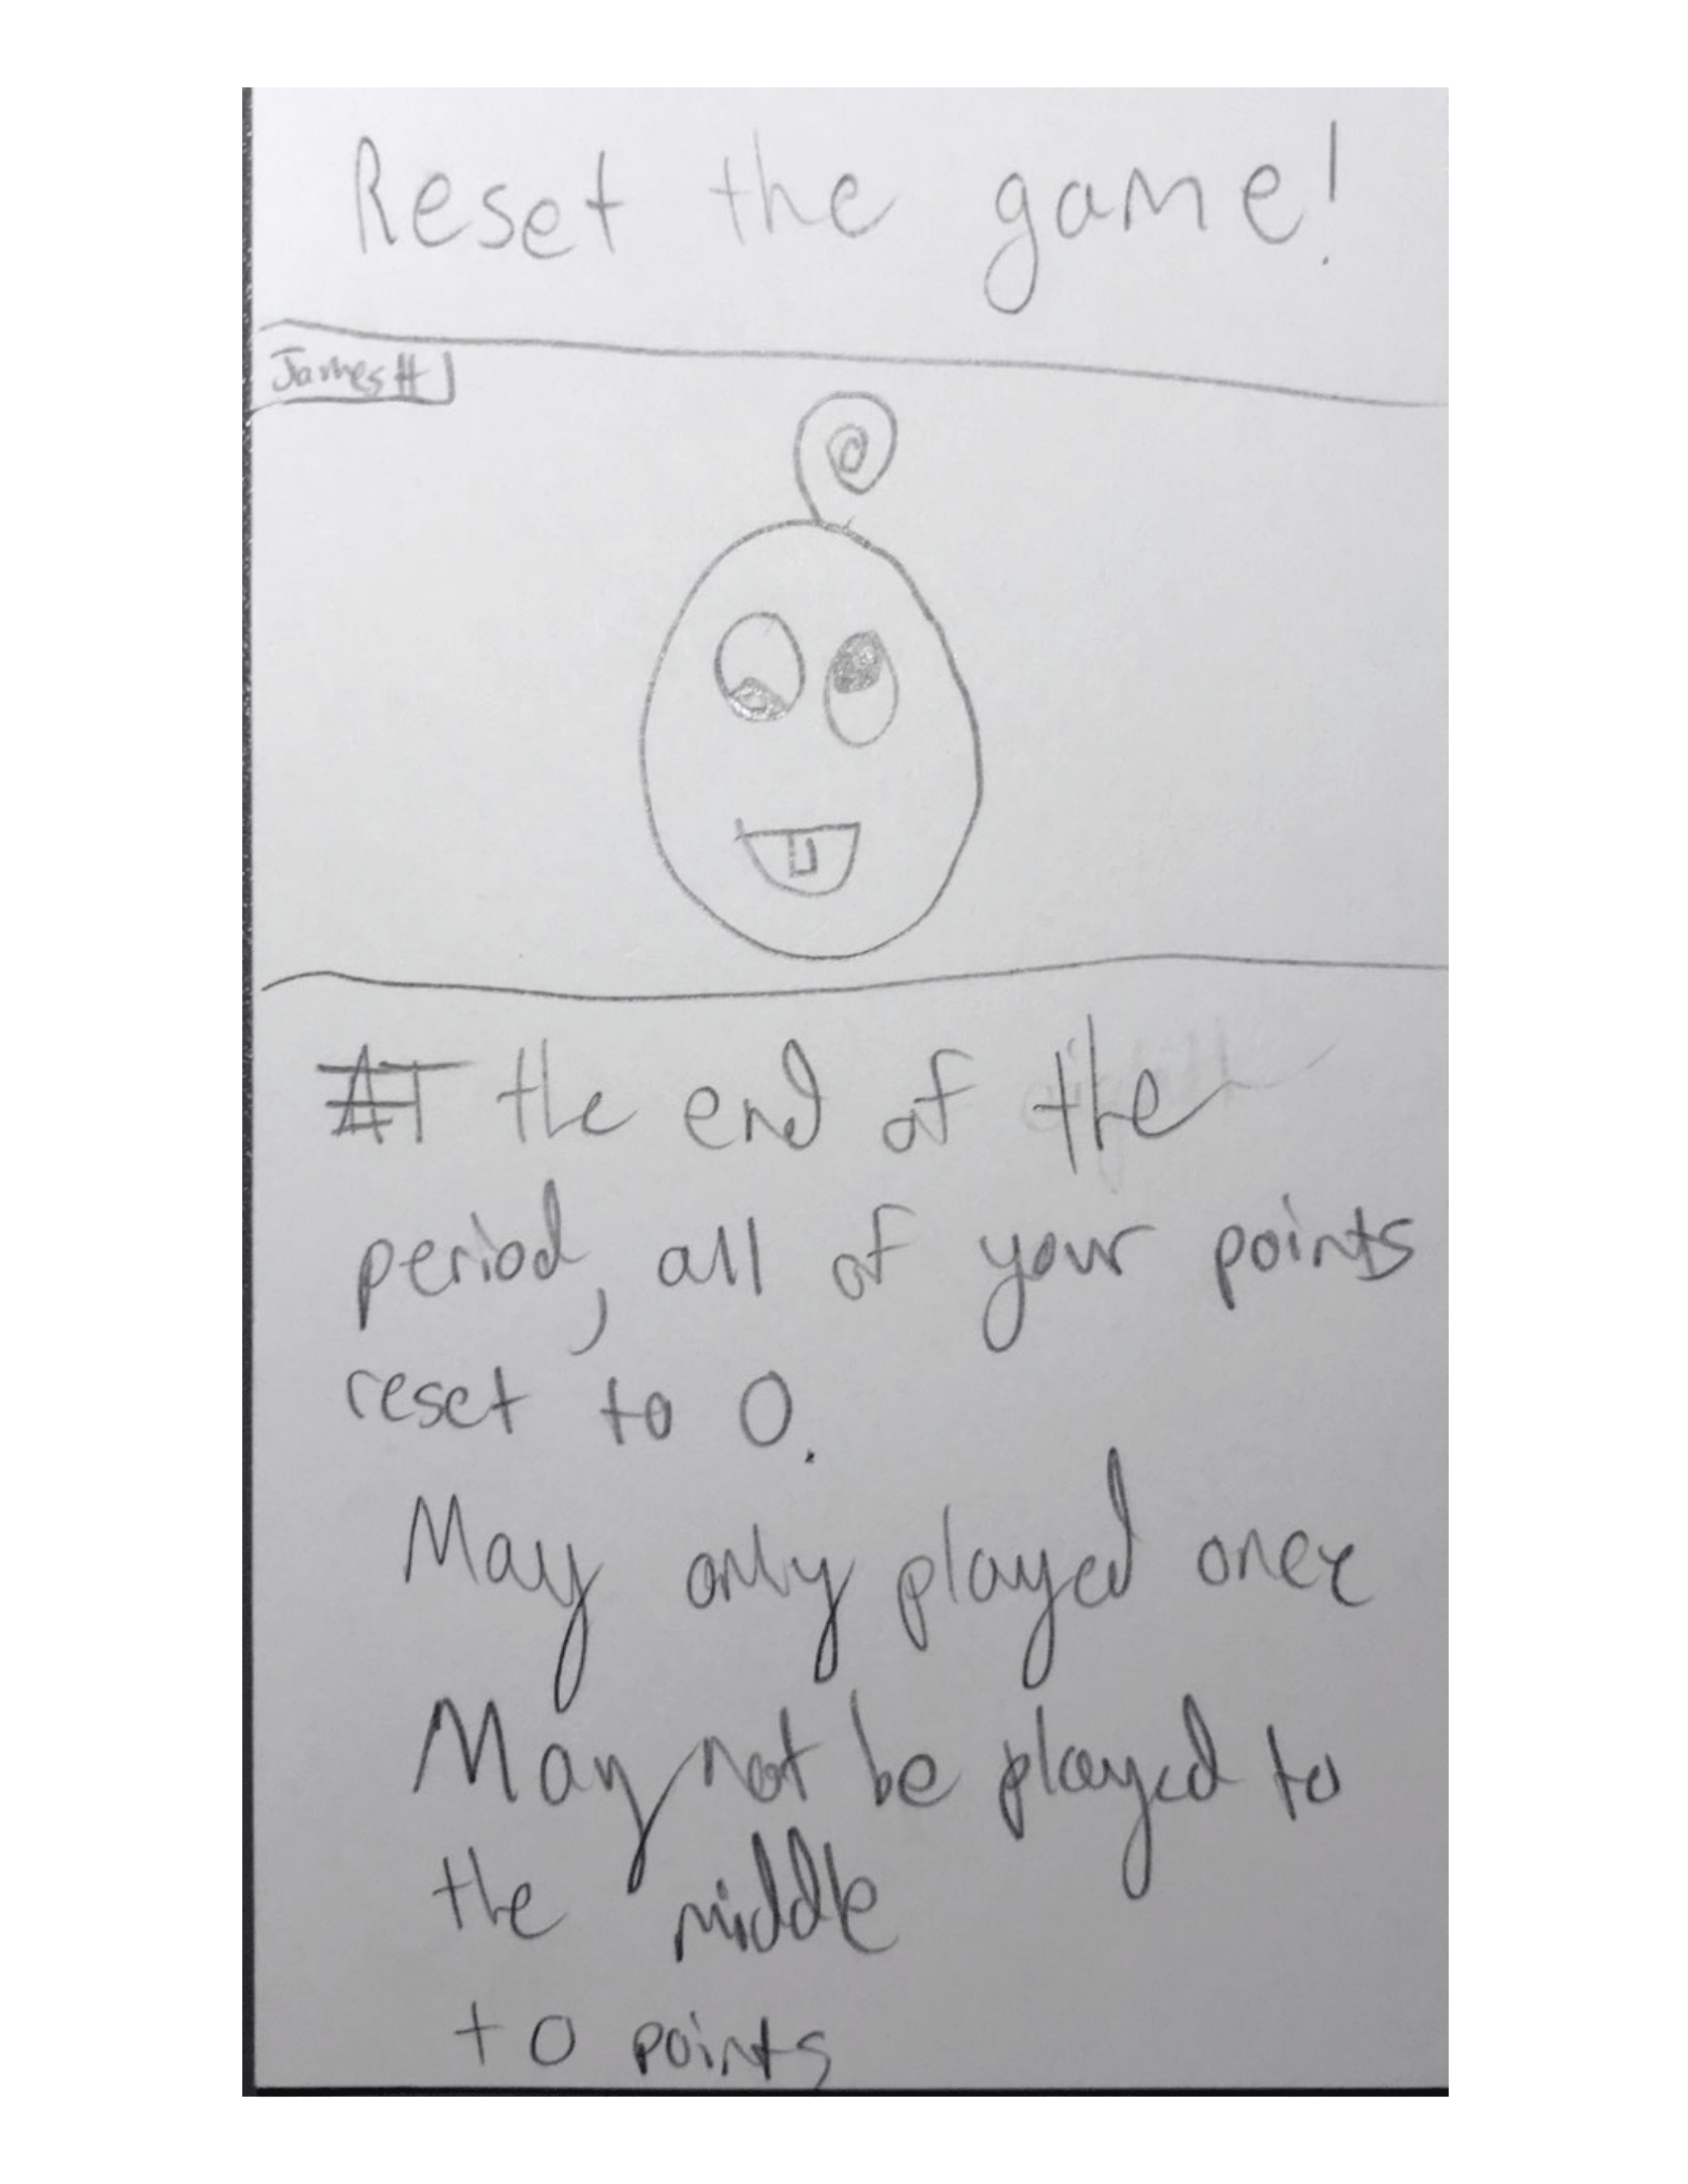 Reset the game!
James H
AT the end of the
period, all of your points
reset to 0.
May only played once
May not be played to
the middle
+0 points